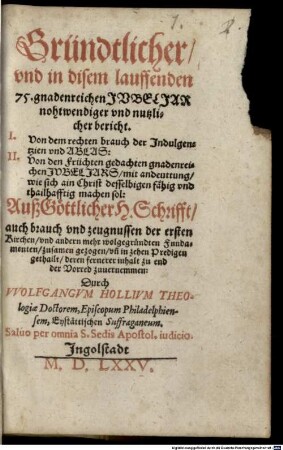 Gründtlicher/
vnd in disem lauffenden
75. gnadenreichen JVBELJAR
nohtwendiger vnd nutzli-
cher bericht.
I. Von dem rechten brauch der Indulgen-
tzien vnd ABLAS:
II. Von den Früchten gedachten gnadenrei-
chen JVBELJARS/mit andeuttung/
wie sich ain Christ desselbigen fähig vnd
thailhafftig machen sol:
Auß Göttlicher H. Schrifft/
auch brauch vnd zeugnussen der ersten
Kirchen/vnd andern mehr wolgegründten Funda-
menten/zusamen gezogen/vñ in zehen Predigen
gethailt/deren fernerer inhalt zu end
der Vorred zuuernemmen:
Durch
VVOLFGANGVM HOLLIVM THEO-
logiæ Doctorem, Episcopum Philadelphien-
sem, Eystättischen Suffraganeum.
Saluo per omnia S. Sedis Apostol. iudicio.
Ingolstadt
M. D. LXXV.